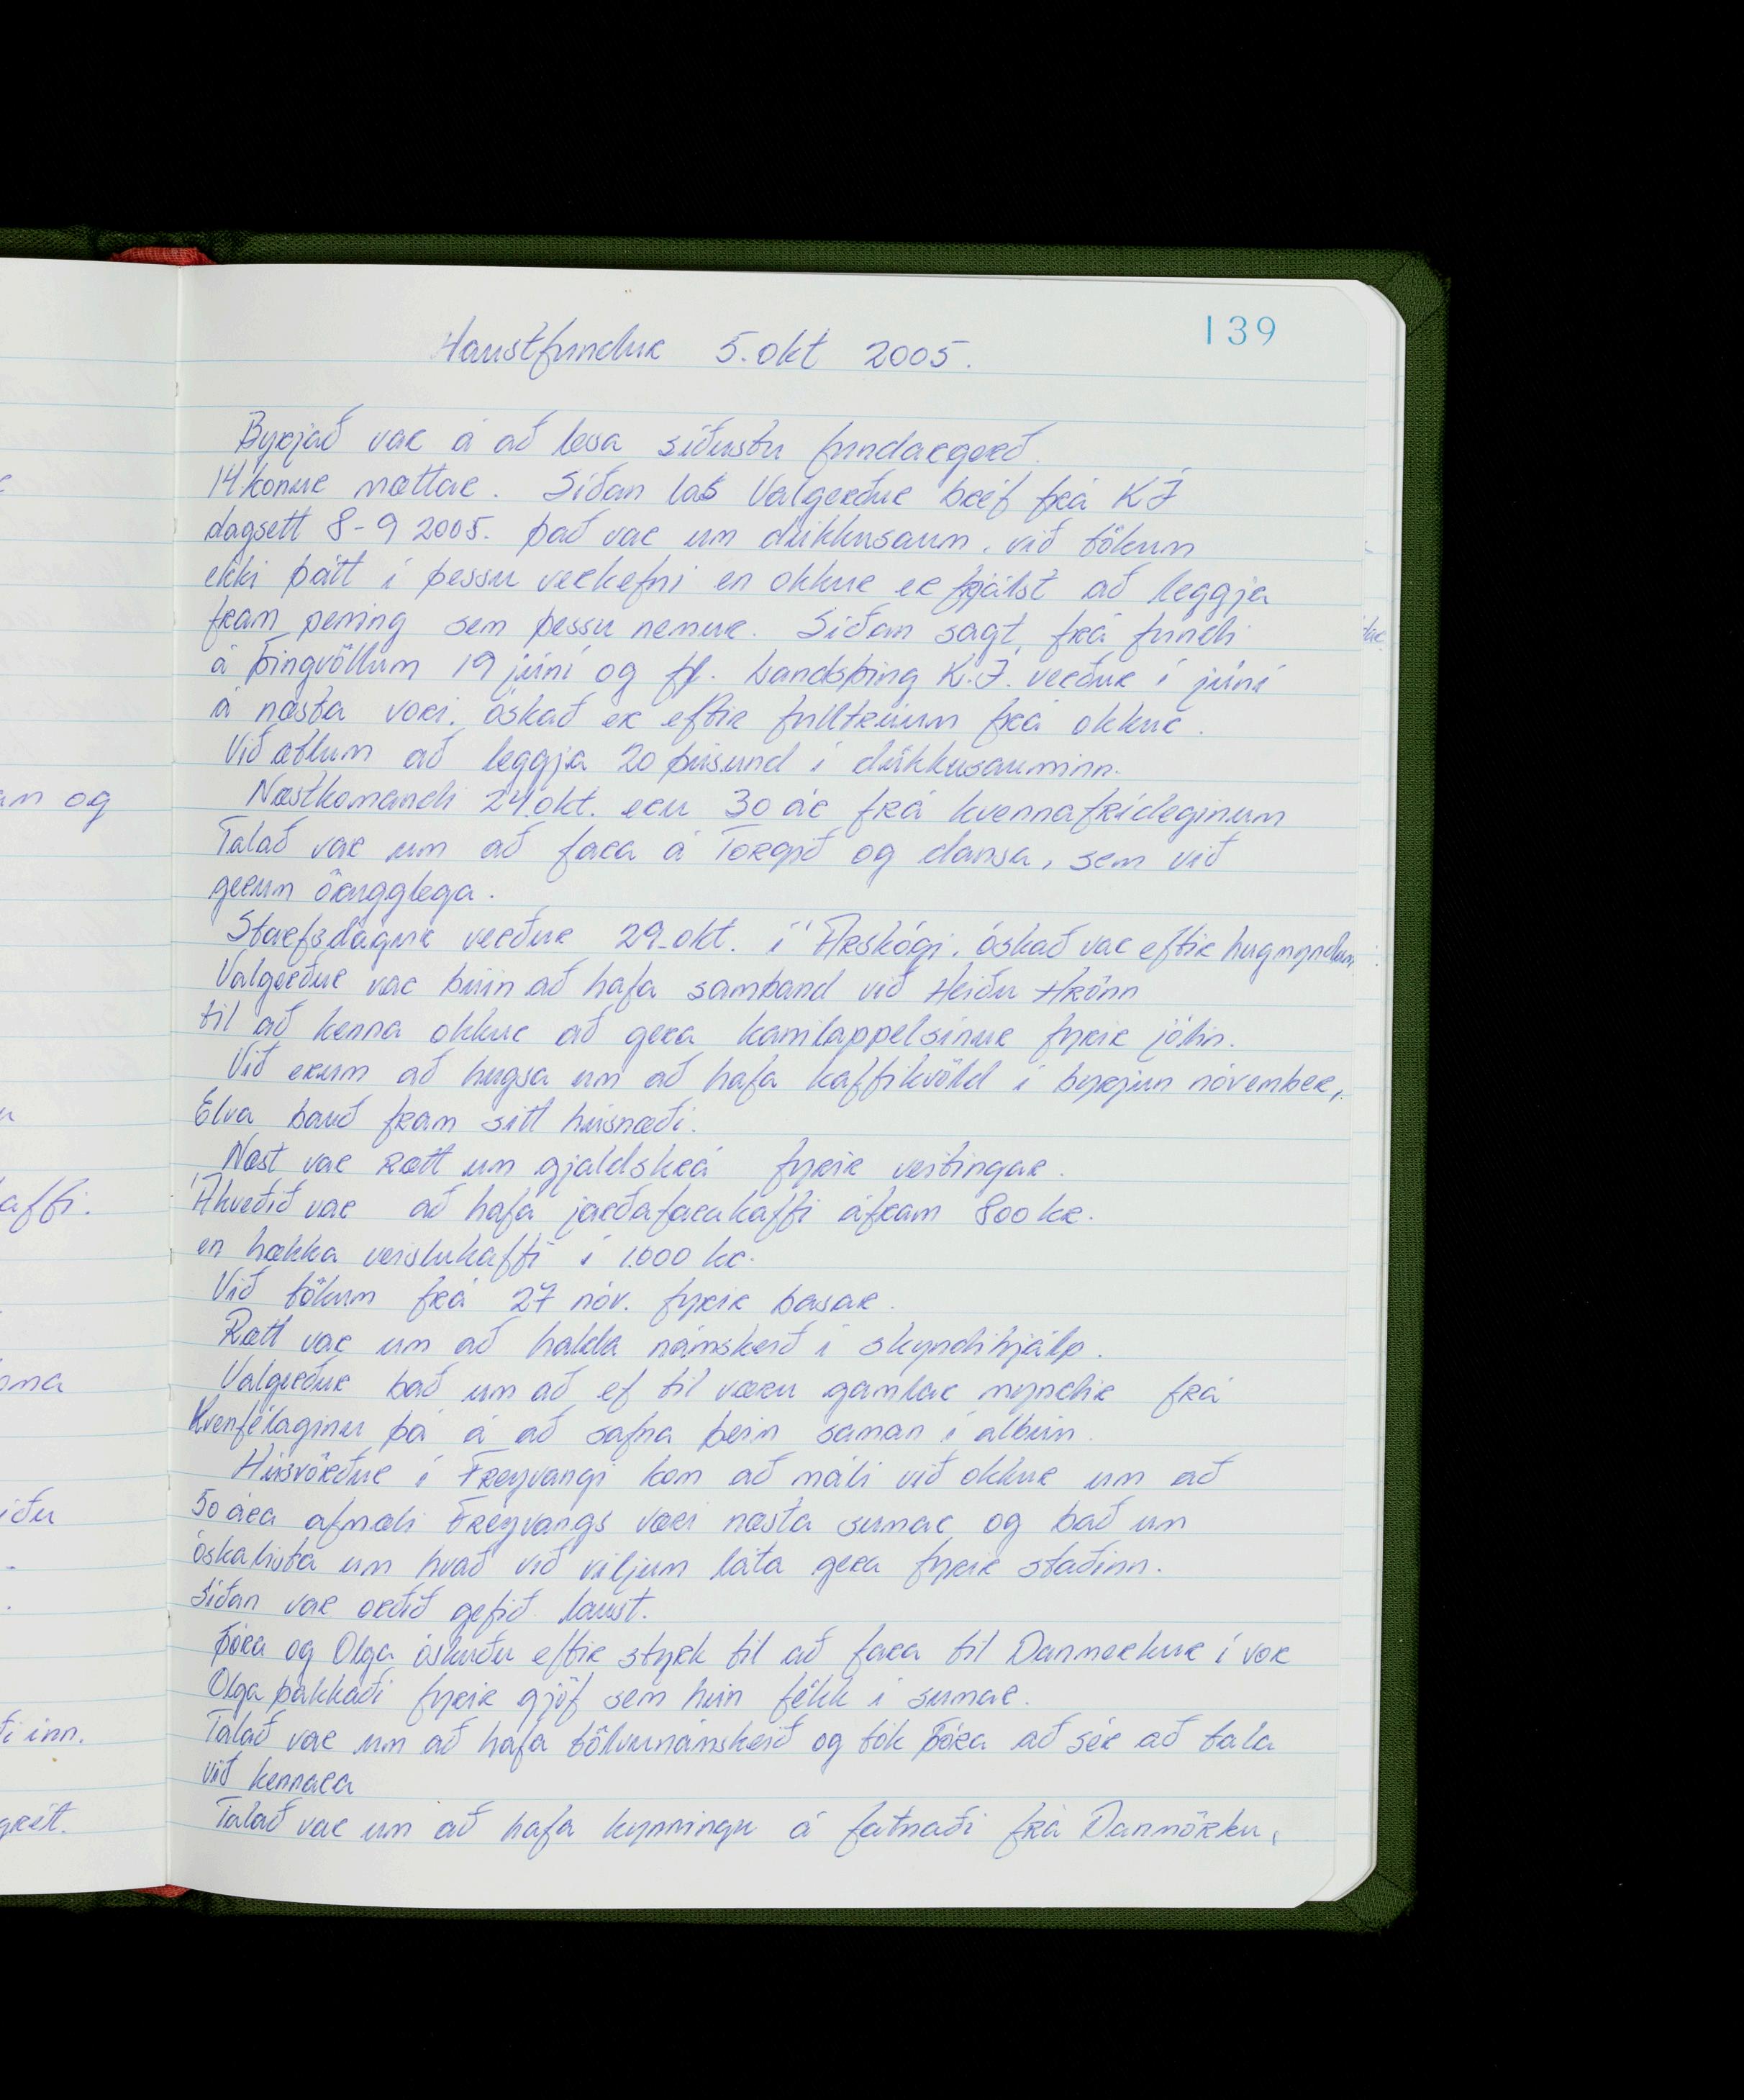 139
Haustfundur 5. okt 2005.
Byrjað var á að lesa síðustu fundargerð.
14 konur mættar. Síðan las Valgerður bréf frá KÍ
dagsett 8-9 2005. Það var um dúkkusaum, við tökum
ekki þátt í þessu verkefni en okkur er frjálst að leggja
fram pening sem þessu nemur. Síðan sagt frá fundi
á Þingvöllum 19 júní og fl. Landsþing K.Í. verður í júní
á næsta vori. óskað er eftir fulltrúum frá okkur.
Við ætlum að leggja 20 þúsund í dúkkusauminn.
Næstkomandi 24. okt. eru 30 ár frá kvennafrídeginum
Talað var um að fara á Torgið og dansa, sem við
gerum örugglega.
Starfsdagur verður 29. okt. í Árskógi. óskað var eftir hugmyndum.
Valgerður var búin að hafa samband við Heiðu Hrönn
til að kenna okkur að gera kanilappelsínur fyrir jólin.
Við erum að hugsa um að hafa kaffikvöld í byrjun nóvember,
Elva bauð fram sitt húsnæði.
Næst var rætt um gjaldskrá fyrir veitingar.
Ákveðið var að hafa jarðafarakaffi áfram 800 kr.
en hækka veislukaffi í 1.000 kr.
Við tökum frá 27 nóv. fyrir basar.
Rætt var um að halda námskeið í skyndihjálp.
Valgerður bað um að ef til væru gamlar myndir frá
Kvenfélaginu þá á að safna þeim saman í albúm.
Húsvörður í Freyvangi kom að máli við okkur um að
50 ára afmæli Freyvangs væri næsta sumar og bað um
óskalista um hvað við viljum láta gera fyrir staðinn.
Síðan var orðið gefið laust.
Þóra og Olga óskuðu eftir styrk til að fara til Danmerkur í vor
Olga þakkaði fyrir gjöf sem hún fékk í sumar.
Talað var um að hafa tölvunámskeið og tók Þóra að sér að tala
við kennara
Talað var um að hafa kynningu á fatnaði frá Danmörku,